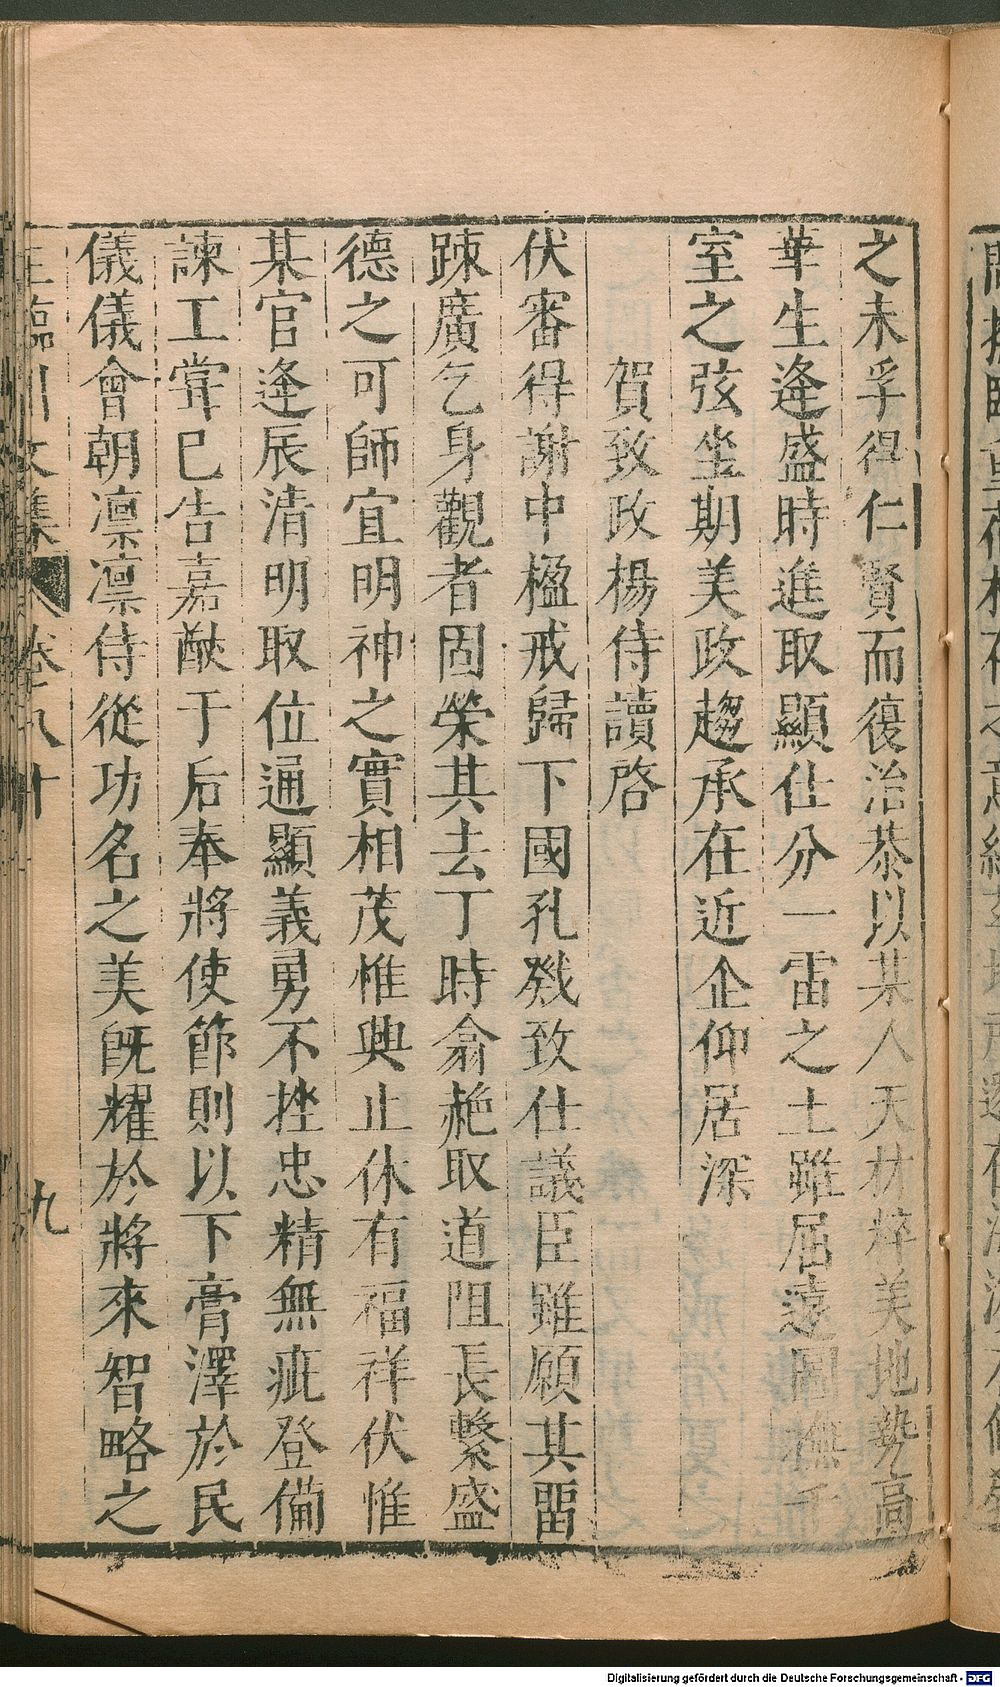 之未孚得仁賢而復治恭以某人天材粹美地勢高
華生逢盛時進取顯仕分一雷之土雖屈遠圖撫千
室之弦坐期美政趨承在近企仰居深
賀致政楊侍讀啓
伏審得謝中楹戒歸下國孔戣致仕議臣雖願其畱
踈廣乞身觀者固榮其去丁時翕赩取道阻長繄盛
德之可師宜明神之實相茂惟興止休有福祥伏惟
某官逢辰清明取位通顯義勇不挫忠精無疵登備
諫工甞巳告嘉猷于后奉將使節則以下膏澤於民
儀儀會朝凛凛侍從功名之美旣耀於將來智略之
王臨川文集 卷八十 九
Digitalisierung gefördert durch die Deutsche Forschungsgemeinschaft - DFG